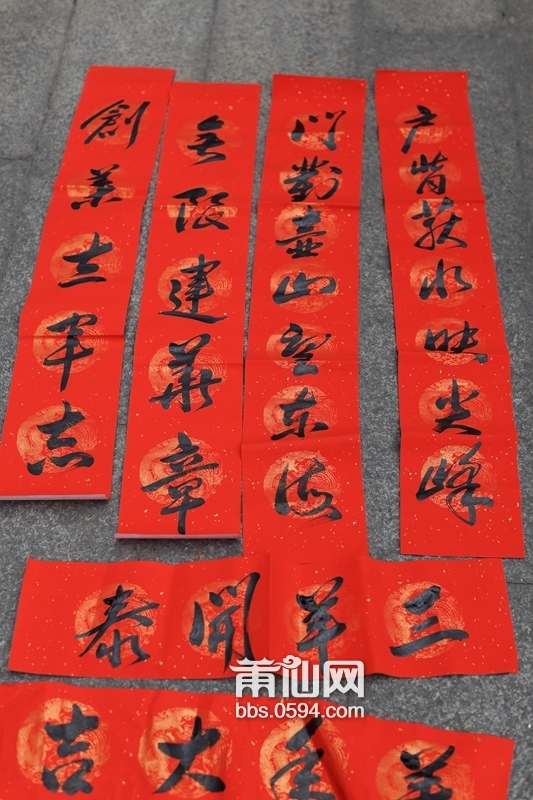 户背荻水映尖峰
门對壺山望东海
无限建華章
創業立軍志
三羊開泰
羊年大吉
莆仙网
bbs.0594.com